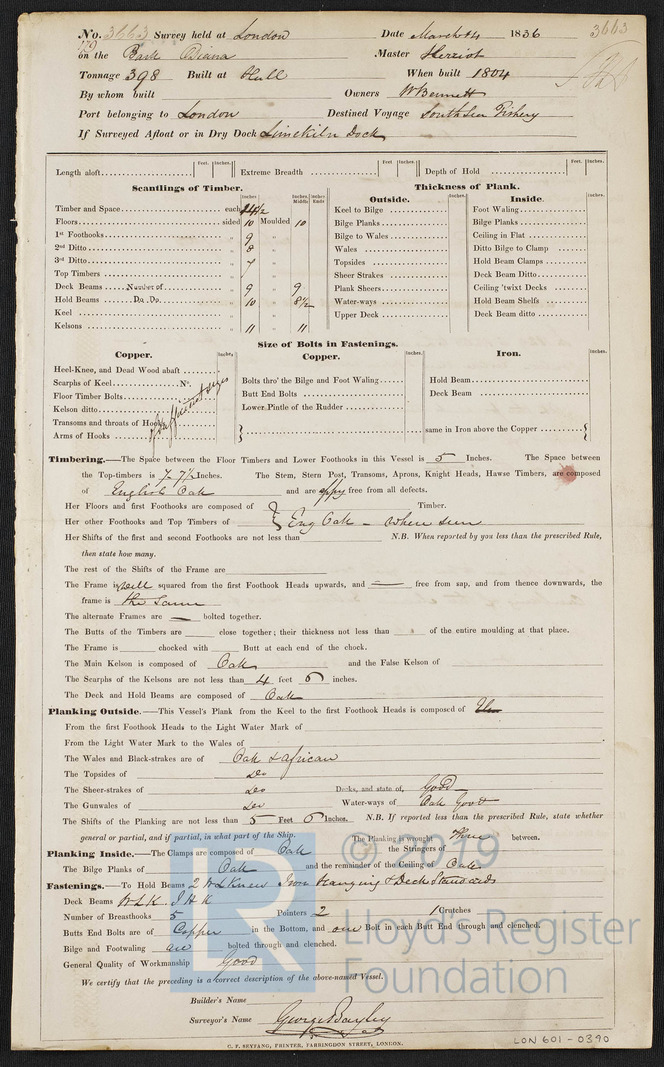 No. 3663 Survey held at London Date March 14 1836 3663
179
on the Bark Diana Master Herriot
Tonnage 398 Built at Hull When built 1804
By whom built Owners W Bennett
Port belonging to London Destined Voyage South Sea Fishery
If Surveyed Afloat or in Dry Dock Limekiln Dock
Length aloft Feet. Inches. Extreme Breadth Feet. Inches. Depth of Hold Feet. Inches.
Scantlings of Timber. Thickness of Plank.
Inches Inches Middle Inches Ends Outside. Inches. Inside. Inches.
Timber and Space each 14 1/2 Keel to Bilge Foot Waling
Floors sided 10 Moulded 10 Bilge Planks Bilge Planks
1st Foothooks " 9 " Bilge to Wales Ceiling in Flat
2nd Ditto " 8 " Wales Ditto Bilge to Clamp
3rd Ditto " 7 " Topsides Hold Beam Clamps
Top Timbers " " Sheer Strakes Deck Beam Ditto
Deck Beams Number of " 9 " 9 Plank Sheers Ceiling 'twixt Decks
Hold Beams Do. Do. " 10 " 8 1/2 Water-ways Hold Beam Shelfs
Keel " " Upper Deck Deck Beam ditto
Kelsons " 11 " 11
Size of Bolts in Fastenings.
Copper. Inches. Copper. Inches. Iron. Inches.
Heel-Knee, and Dead Wood abaft
Scarphs of Keel No. Bolts thro' the Bilge and Foot Waling Hold Beam
Floor Timber Bolts Butt End Bolts Deck Beam
Kelson ditto Lower Pintle of the Rudder
Transoms and throats of Hooks of sufficient sizes
Arms of Hooks same in Iron above the Copper
Timbering.—The Space between the Floor Timbers and Lower Foothooks in this Vessel is 5 Inches. The Space between
the Top-timbers is 7-7 1/2 Inches. The Stem, Stern Post, Transoms, Aprons, Knight Heads, Hawse Timbers, are composed
of English Oak and are appy free from all defects.
Her Floors and first Foothooks are composed of Timber.
Her other Foothooks and Top Timbers of Eng Oak - where seen
Her Shifts of the first and second Foothooks are not less than N.B. When reported by you less than the prescribed Rule,
then state how many.
The rest of the Shifts of the Frame are
The Frame is well squared from the first Foothook Heads upwards, and — free from sap, and from thence downwards, the
frame is the same
The alternate Frames are — bolted together.
The Butts of the Timbers are close together; their thickness not less than of the entire moulding at that place.
The Frame is chocked with Butt at each end of the chock.
The Main Kelson is composed of Oak and the False Kelson of
The Scarphs of the Kelsons are not less than 4 feet 6 inches.
The Deck and Hold Beams are composed of Oak
Planking Outside.—This Vessel's Plank from the Keel to the first Foothook Heads is composed of Elm
From the first Foothook Heads to the Light Water Mark of
From the Light Water Mark to the Wales of
The Wales and Black-strakes are of Oak & African
The Topsides of Do
The Sheer-strakes of Do Decks, and state of, Good
The Gunwales of Do Water-ways of Oak Good
The Shifts of the Planking are not less than 5 Feet 6 Inches. N.B. If reported less than the prescribed Rule, state whether
general or partial, and if partial, in what part of the Ship. The Planking is wrought three between.
Planking Inside.—The Clamps are composed of Oak the Stringers of
The Bilge Planks of Oak and the remainder of the Ceiling of Oak
Fastenings.—To Hold Beams 2 W L Knees Iron Hanging & Deck Standards
Deck Beams W L K. I H K
Number of Breasthooks 5 Pointers 2 1 Crutches
Butts End Bolts are of Copper in the Bottom, and one Bolt in each Butt End through and clenched.
Bilge and Footwaling are bolted through and clenched.
General Quality of Workmanship Good
We certify that the preceding is a correct description of the above-named Vessel.
Builder's Name
Surveyor's Name George Bayley
C. F. SEYFANG, PRINTER, FARRINGDON STREET, LONDON.
LON 601-0390
LR
© 2019
Lloyd's Register
Foundation